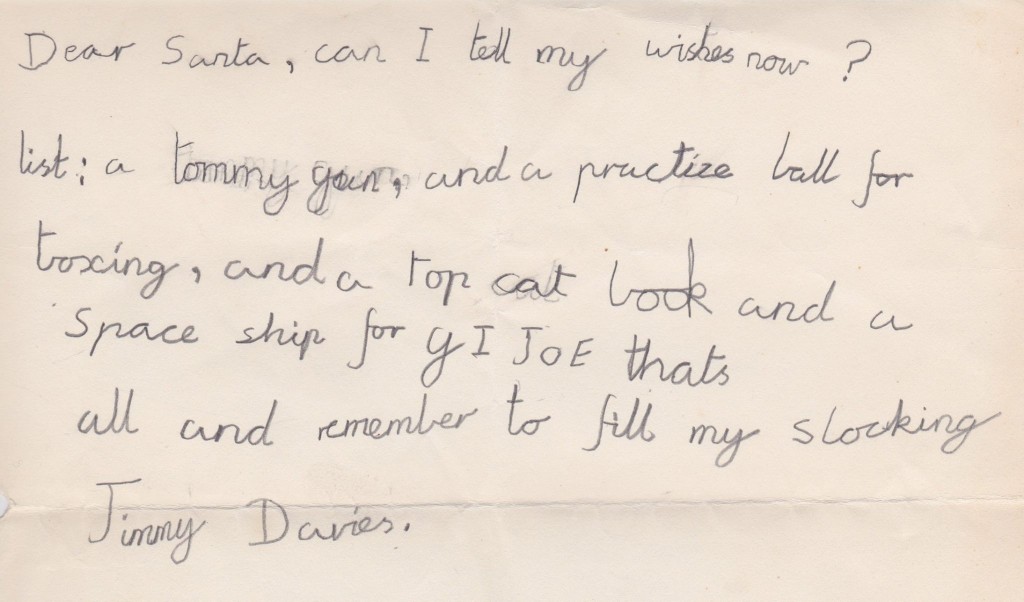 Dear Santa, can I tell my wishes now ?
list; a tommy gun, and a practize ball for
boxing, and a top cat book and a
space ship for GI JOE thats
all and remember to fill my slocking
Jimmy Davies.